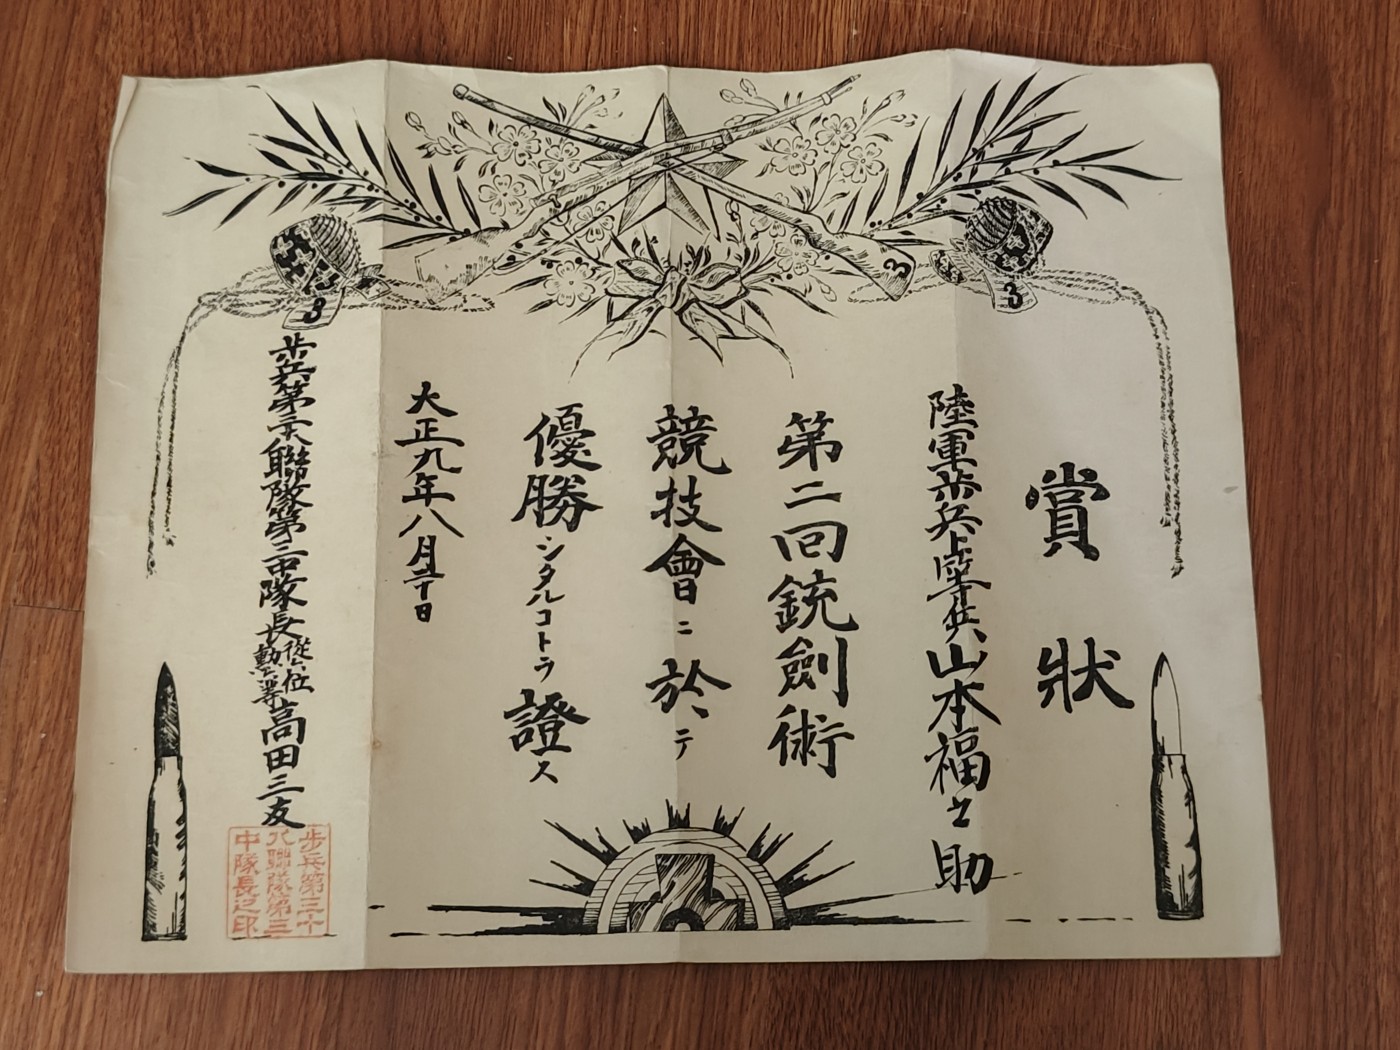 3
3
3
賞狀
陸軍歩兵上等兵山本福之助
第二回銃劍術
競技會ニ於テ
優勝シタルコトヲ證ス
大正九年八月 日
歩兵第三十八聯隊第三中隊長 從六位 勲 等 高田三友
步兵第三十
八聯隊第三
中隊長之印